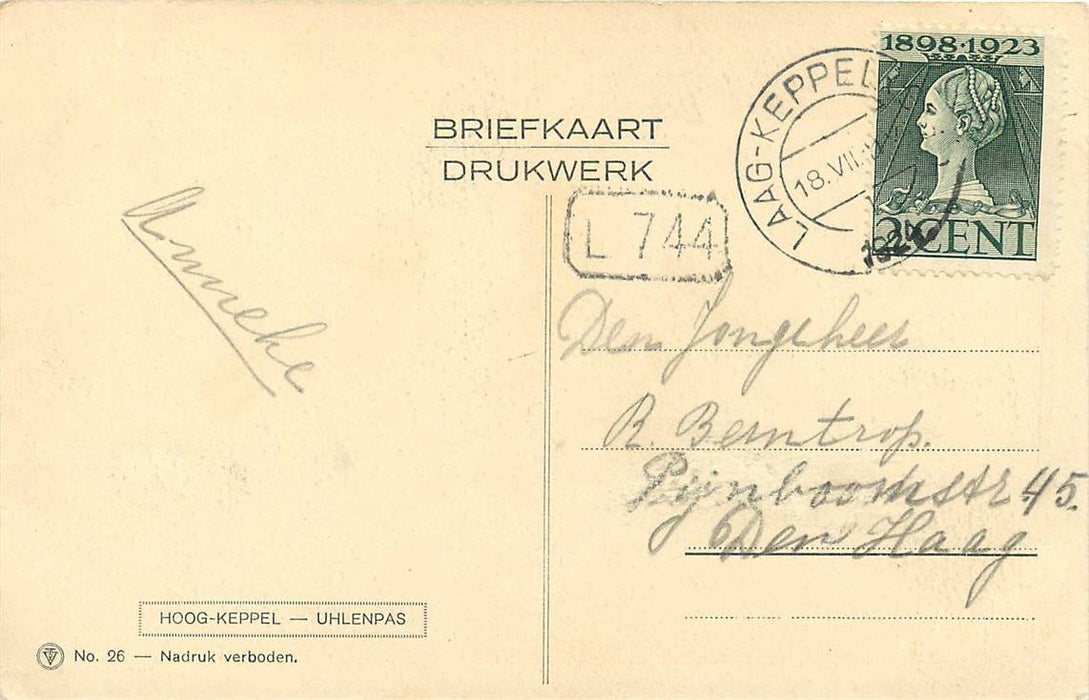 BRIEFKAART
DRUKWERK
1898·1923
2 CENT
LAAG-KEPPEL
18.VII
1924
L 744
Anneke
Den Jongeheer
R. Berntrop.
Pijnboomstr. 45.
Den Haag
HOOG-KEPPEL — UHLENPAS
No. 26 — Nadruk verboden.